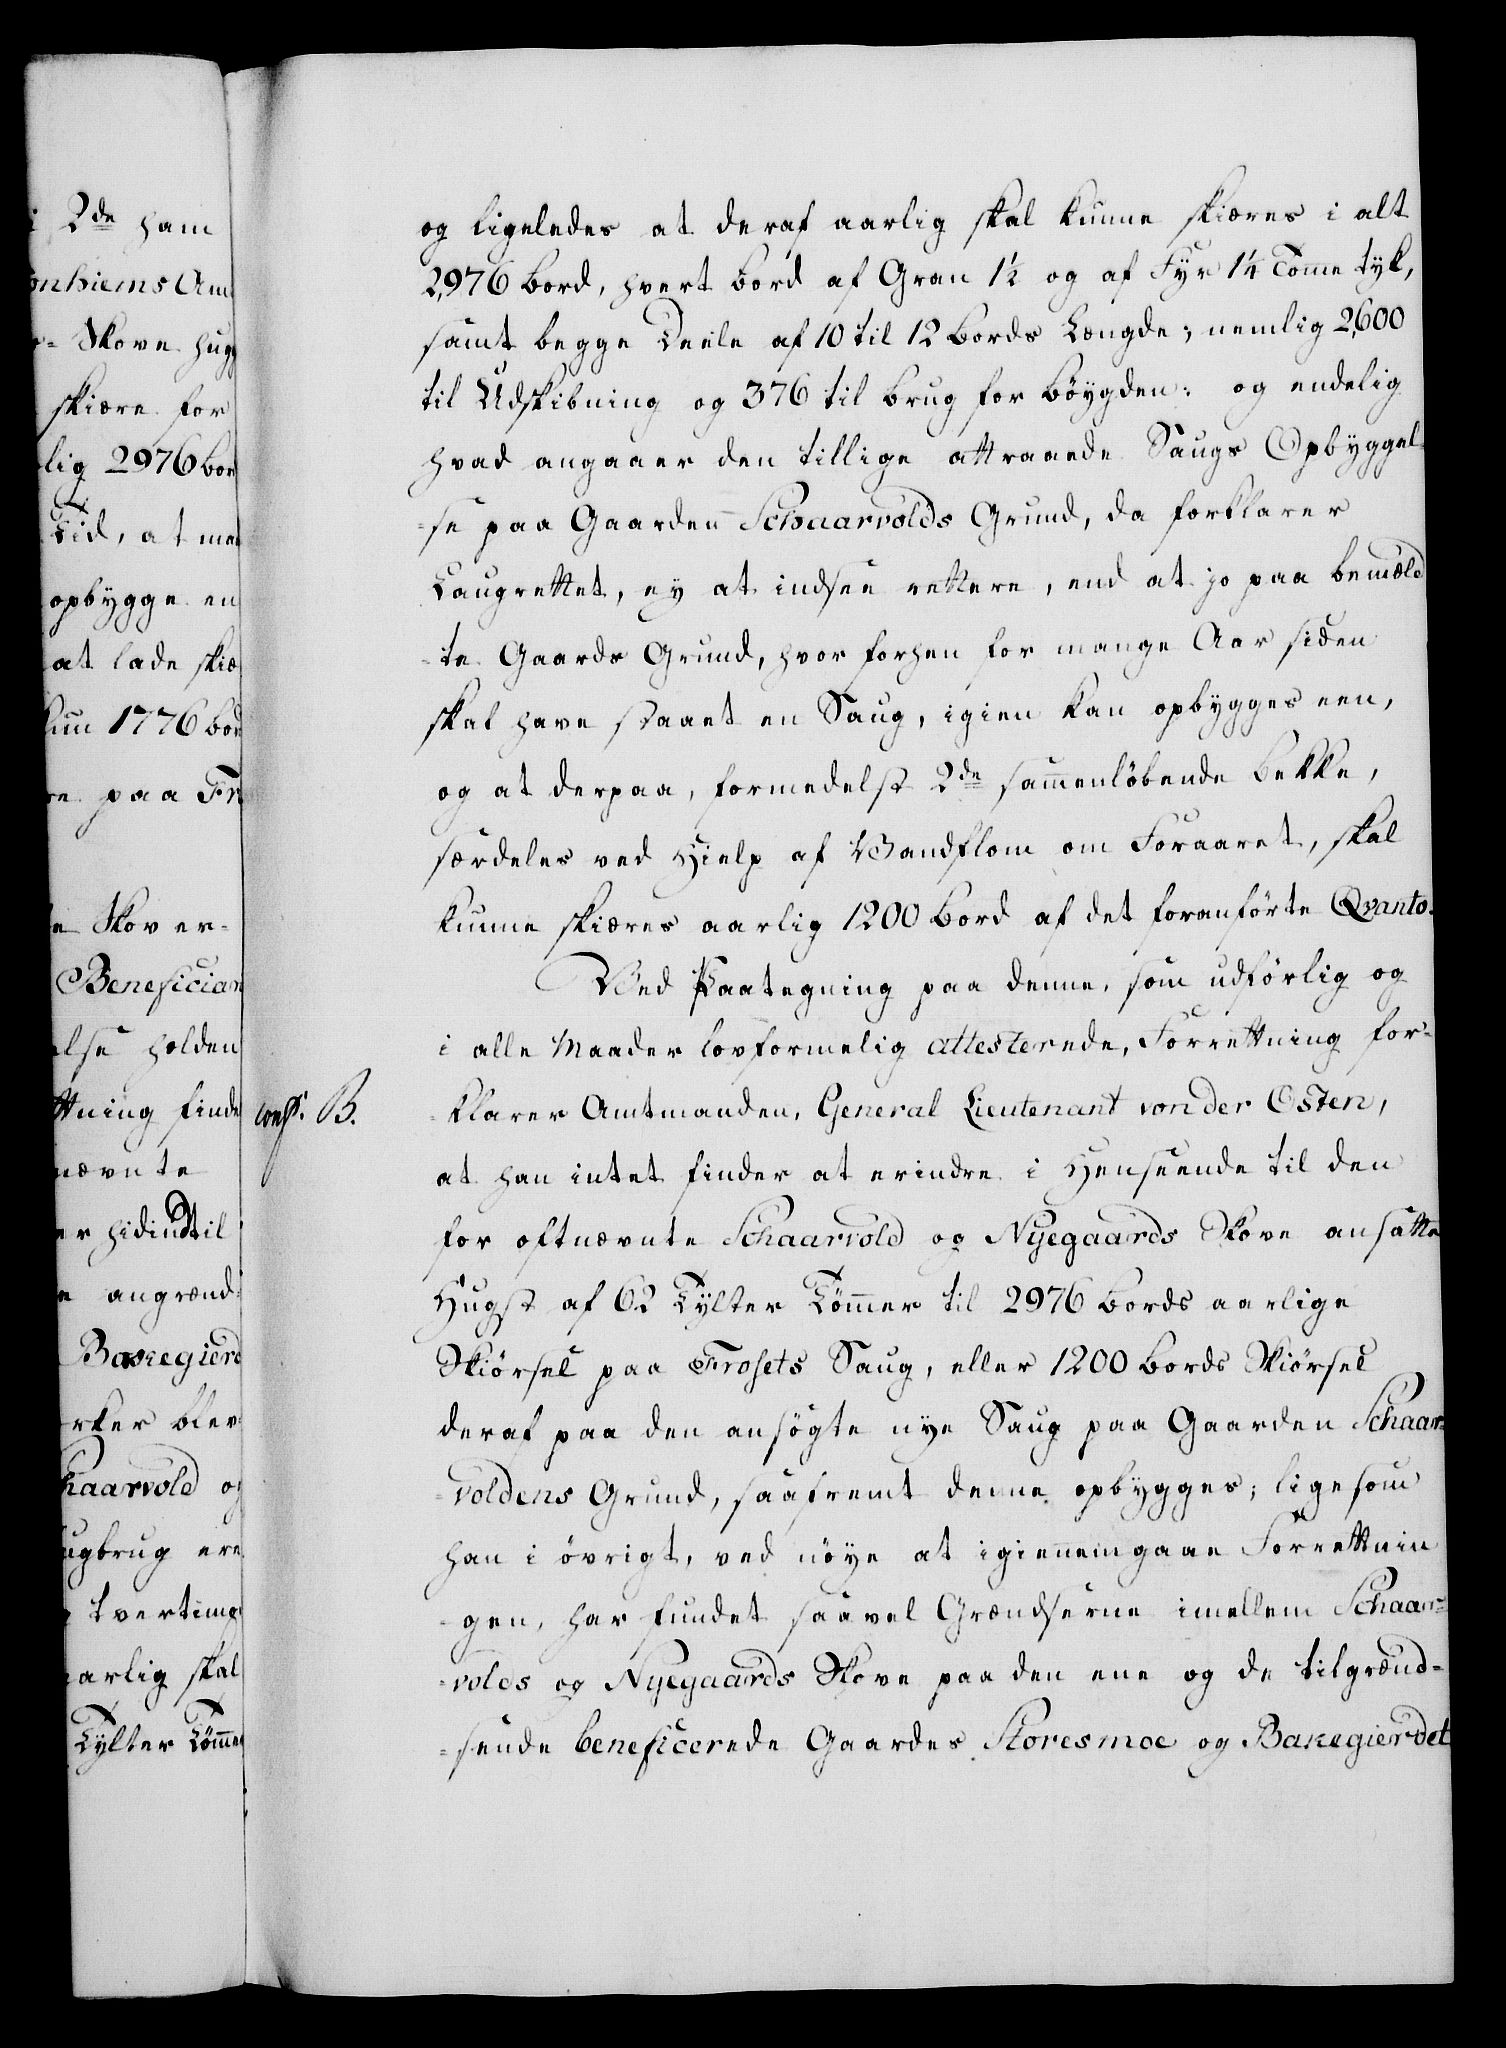 2de ham
onhiems Am
Skove hug
skiære for
lig 2976 bor
Tid, at me
opbygge en
at lade skiæ
kun 1776 bor
re paa Fr
te Skov er-
Beneficiar
else holden
ttning finde
nævnte
er hidindtil
e angrænd
Bakegierd
rker blev
haarvold og
ugbrug ere
tvertimo
aarlig skal
Tylter Tømme
og ligeledes at deraf aarlig skal kunne skiæres i alt
2,976 bord, hvert bord af Gran 1½ og af Fyr 1¼ Tomme tyk,
samt begge Deele af 10 til 12 Bords Længde; nemlig 2,600
til Udskibning og 376 til brug for bøygden: og endelig
hvad angaaer den tillige attraaede Saugs Opbyggel-
-se paa Gaarden Schaarvolds Grund, da forklarer
Laugrettet, ey at indsee rettere, end at jo paa bemæld
-te Gaards Grund, hvor forhen for mange Aar siden
skal have staaet en Saug, igien kan opbygges een,
og at derpaa, formedelst 2de sammenløbende bekke,
særdeles ved Hielp af Vandflom om Foraaret, skal
kunne skiæres aarlig 1200 bord af det foranførte Qvanto.
Ved Paategning paa denne, som udførlig og
i alle Maader lovformelig attesterede, Forrettning for-
conf: B.
-klarer Amtmanden, General Lieutenant von der Osten,
at han intet finder at erindre i Henseende til den
for oftnævnte Schaarvold og Nyegaards Skove ansatte
Hugst af 62 Tylter Tømmer til 2976 bords aarlige
Skiørsel paa Frosets Saug, eller 1200 bords Skiørsel
deraf paa den ansøgte nye Saug paa Gaarden Schaar-
-voldens Grund, saafremt denne opbygges; ligesom
han i øvrigt, ved nøye at igiennemgaae Forrettnin
-gen, har fundet saavel Grændserne imellem Schaar-
-volds og Nyegaards Skove paa den ene og de tilgrænd-
-sende beneficerede Gaardes Storesmoe og Bakegierdet